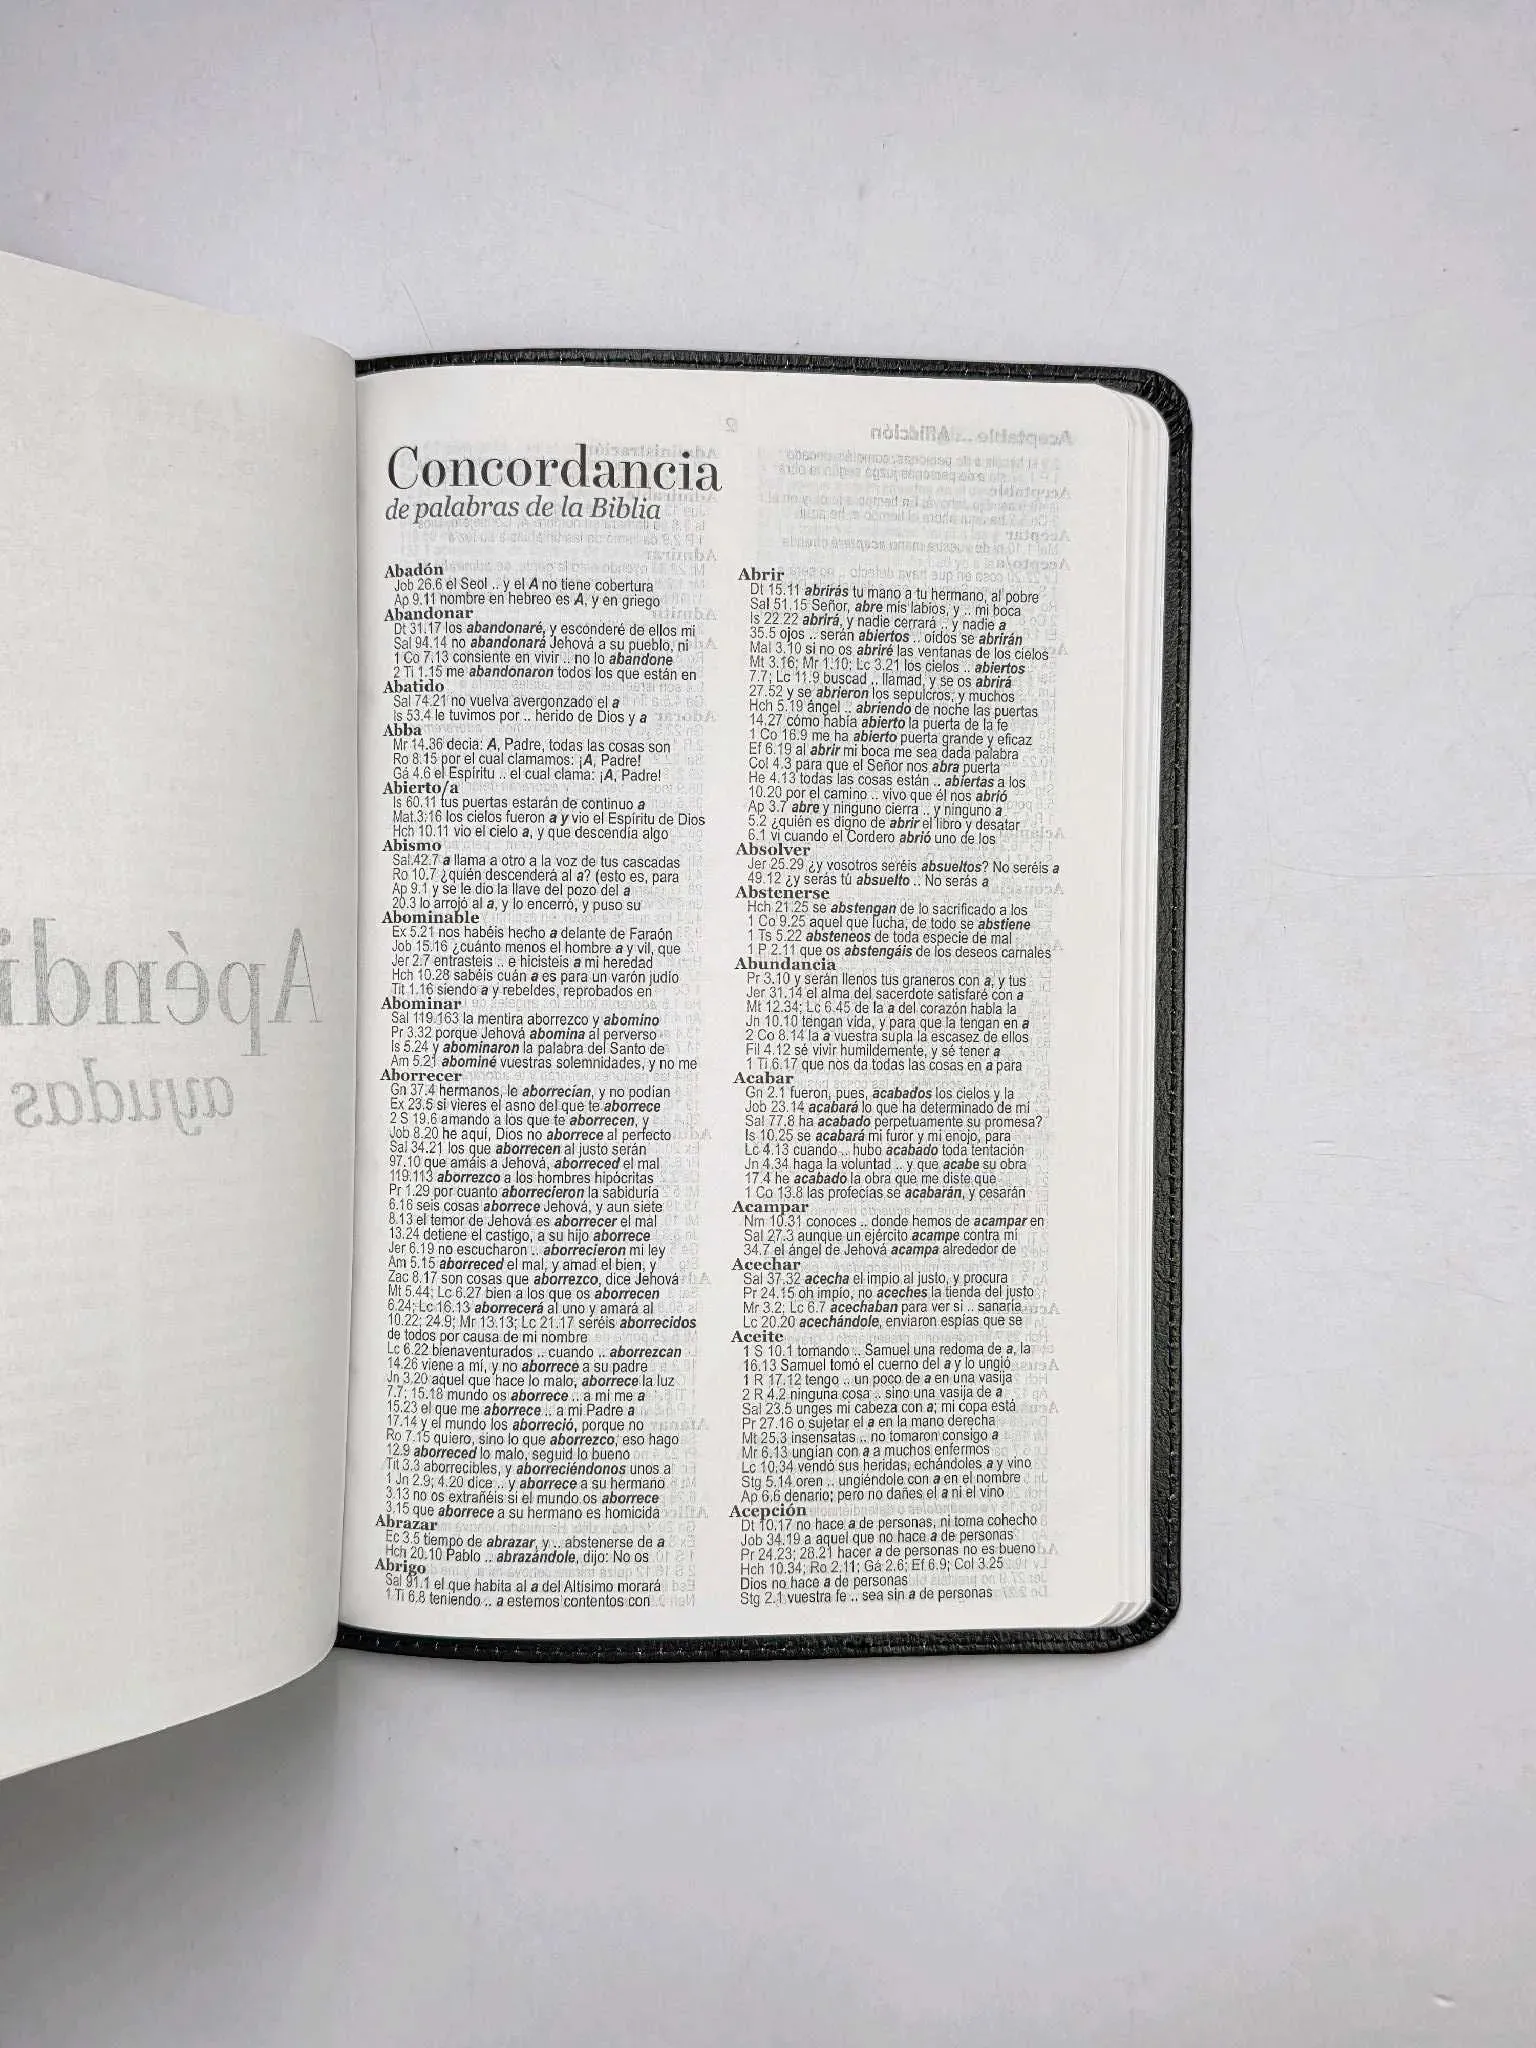 Concordancia
de palabras de la Biblia
Abadón
Job 26.6 el Seol .. y el A no tiene cobertura
Ap 9.11 nombre en hebreo es A, y en griego
Abandonar
Dt 31.17 los abandonaré, y esconderé de ellos mi
Sal 94.14 no abandonará Jehová a su pueblo, ni
1 Co 7.13 consiente en vivir .. no lo abandone
2 Ti 1.15 me abandonaron todos los que están en
Abatido
Sal 74.21 no vuelva avergonzado el a
Is 53.4 le tuvimos por .. herido de Dios y a
Abba
Mr 14.36 decía: A, Padre, todas las cosas son
Ro 8.15 por el cual clamamos: ¡A, Padre!
Gá 4.6 el Espíritu .. el cual clama: ¡A, Padre!
Abierto/a
Is 60.11 tus puertas estarán de continuo a
Mat.3:16 los cielos fueron a y vio el Espíritu de Dios
Hch 10.11 vio el cielo a, y que descendía algo
Abismo
Sal.42.7 a llama a otro a la voz de tus cascadas
Ro 10.7 ¿quién descenderá al a? (esto es, para
Ap 9.1 y se le dio la llave del pozo del a
20.3 lo arrojó al a, y lo encerró, y puso su
Abominable
Ex 5.21 nos habéis hecho a delante de Faraón
Job 15.16 ¿cuánto menos el hombre a y vil, que
Jer 2.7 entrasteis .. e hicisteis a mi heredad
Hch 10.28 sabéis cuán a es para un varón judío
Tit 1.16 siendo a y rebeldes, reprobados en
Abominar
Sal 119.163 la mentira aborrezco y abomino
Pr 3.32 porque Jehová abomina al perverso
Is 5.24 y abominaron la palabra del Santo de
Am 5.21 abominé vuestras solemnidades, y no me
Aborrecer
Gn 37.4 hermanos, le aborrecían, y no podían
Ex 23.5 si vieres el asno del que te aborrece
2 S 19.6 amando a los que te aborrecen, y
Job 8.20 he aquí, Dios no aborrece al perfecto
Sal 34.21 los que aborrecen al justo serán
97.10 que amáis a Jehová, aborreced el mal
119.113 aborrezco a los hombres hipócritas
Pr 1.29 por cuanto aborrecieron la sabiduría
6.16 seis cosas aborrece Jehová, y aun siete
8.13 el temor de Jehová es aborrecer el mal
13.24 detiene el castigo, a su hijo aborrece
Jer 6.19 no escucharon .. aborrecieron mi ley
Am 5.15 aborreced el mal, y amad el bien, y
Zac 8.17 son cosas que aborrezco, dice Jehová
Mt 5.44; Lc 6.27 bien a los que os aborrecen
6.24; Lc 16.13 aborrecerá al uno y amará al
10.22; 24.9; Mr 13.13; Lc 21.17 seréis aborrecidos
de todos por causa de mi nombre
Lc 6.22 bienaventurados .. cuando .. aborrezcan
14.26 viene a mí, y no aborrece a su padre
Jn 3.20 aquel que hace lo malo, aborrece la luz
7.7; 15.18 mundo os aborrece .. a mí me a
15.23 el que me aborrece .. a mi Padre a
17.14 y el mundo los aborreció, porque no
Ro 7.15 quiero, sino lo que aborrezco, eso hago
12.9 aborreced lo malo, seguid lo bueno
Tit 3.3 aborrecibles, y aborreciéndonos unos a
1 Jn 2.9; 4.20 dice .. y aborrece a su hermano
3.13 no os extrañéis si el mundo os aborrece
3.15 que aborrece a su hermano es homicida
Abrazar
Ec 3.5 tiempo de abrazar, y .. abstenerse de a
Hch 20.10 Pablo .. abrazándole, dijo: No os
Abrigo
Sal 91.1 el que habita al a del Altísimo morará
1 Ti 6.8 teniendo .. a estemos contentos con
Abrir
Dt 15.11 abrirás tu mano a tu hermano, al pobre
Sal 51.15 Señor, abre mis labios, y .. mi boca
Is 22.22 abrirá, y nadie cerrará .. y nadie a
35.5 ojos .. serán abiertos .. oídos se abrirán
Mal 3.10 si no os abriré las ventanas de los cielos
Mt 3.16; Mr 1.10; Lc 3.21 los cielos .. abiertos
7.7; Lc 11.9 buscad .. llamad, y se os abrirá
27.52 y se abrieron los sepulcros, y muchos
Hch 5.19 ángel .. abriendo de noche las puertas
14.27 cómo había abierto la puerta de la fe
1 Co 16.9 me ha abierto puerta grande y eficaz
Ef 6.19 al abrir mi boca me sea dada palabra
Col 4.3 para que el Señor nos abra puerta
He 4.13 todas las cosas están .. abiertas a los
10.20 por el camino .. vivo que él nos abrió
Ap 3.7 abre y ninguno cierra .. y ninguno a
5.2 ¿quién es digno de abrir el libro y desatar
6.1 vi cuando el Cordero abrió uno de los
Absolver
Jer 25.29 ¿y vosotros seréis absueltos? No seréis a
49.12 ¿y serás tú absuelto .. No serás a
Abstenerse
Hch 21.25 se abstengan de lo sacrificado a los
1 Co 9.25 aquel que lucha, de todo se abstiene
1 Ts 5.22 absteneos de toda especie de mal
1 P 2.11 que os abstengáis de los deseos carnales
Abundancia
Pr 3.10 y serán llenos tus graneros con a, y tus
Jer 31.14 el alma del sacerdote satisfaré con a
Mt 12.34; Lc 6.45 de la a del corazón habla la
Jn 10.10 tengan vida, y para que la tengan en a
2 Co 8.14 la a vuestra supla la escasez de ellos
Fil 4.12 sé vivir humildemente, y sé tener a
1 Ti 6.17 que nos da todas las cosas en a para
Acabar
Gn 2.1 fueron, pues, acabados los cielos y la
Job 23.14 acabará lo que ha determinado de mí
Sal 77.8 ha acabado perpetuamente su promesa?
Is 10.25 se acabará mi furor y mi enojo, para
Lc 4.13 cuando .. hubo acabado toda tentación
Jn 4.34 haga la voluntad .. y que acabe su obra
17.4 he acabado la obra que me diste que
1 Co 13.8 las profecías se acabarán, y cesarán
Acampar
Nm 10.31 conoces .. donde hemos de acampar en
Sal 27.3 aunque un ejército acampe contra mí
34.7 el ángel de Jehová acampa alrededor de
Acechar
Sal 37.32 acecha el impío al justo, y procura
Pr 24.15 oh impío, no aceches la tienda del justo
Mr 3.2; Lc 6.7 acechaban para ver si .. sanaría
Lc 20.20 acechándole, enviaron espías que se
Aceite
1 S 10.1 tomando .. Samuel una redoma de a, la
16.13 Samuel tomó el cuerno del a y lo ungió
1 R 17.12 tengo .. un poco de a en una vasija
2 R 4.2 ninguna cosa .. sino una vasija de a
Sal 23.5 unges mi cabeza con a; mi copa está
Pr 27.16 o sujetar el a en la mano derecha
Mt 25.3 insensatas .. no tomaron consigo a
Mr 6.13 ungían con a a muchos enfermos
Lc 10.34 vendó sus heridas, echándoles a y vino
Stg 5.14 oren .. ungiéndole con a en el nombre
Ap 6.6 denario; pero no dañes el a ni el vino
Acepción
Dt 10.17 no hace a de personas, ni toma cohecho
Job 34.19 a aquel que no hace a de personas
Pr 24.23; 28.21 hacer a de personas no es bueno
Hch 10.34; Ro 2.11; Gá 2.6; Ef 6.9; Col 3.25
Dios no hace a de personas
Stg 2.1 vuestra fe .. sea sin a de personas